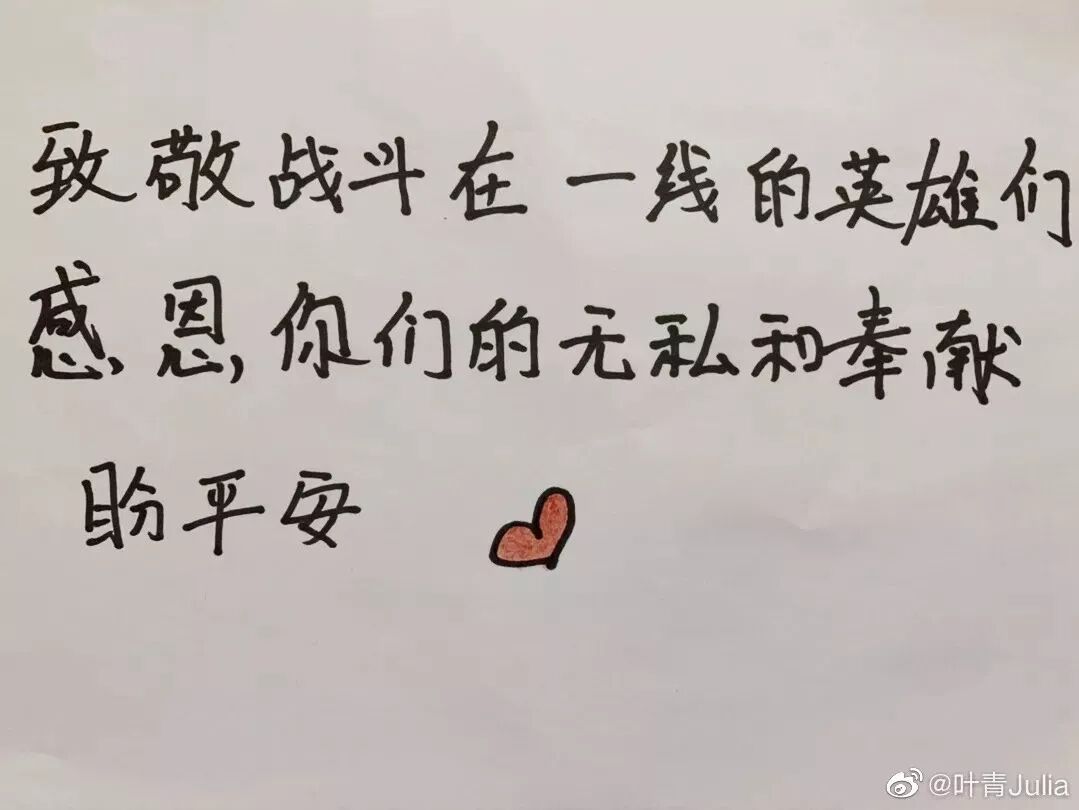 致敬战斗在一线的英雄们
感恩,你们的无私和奉献
盼平安
@叶青Julia